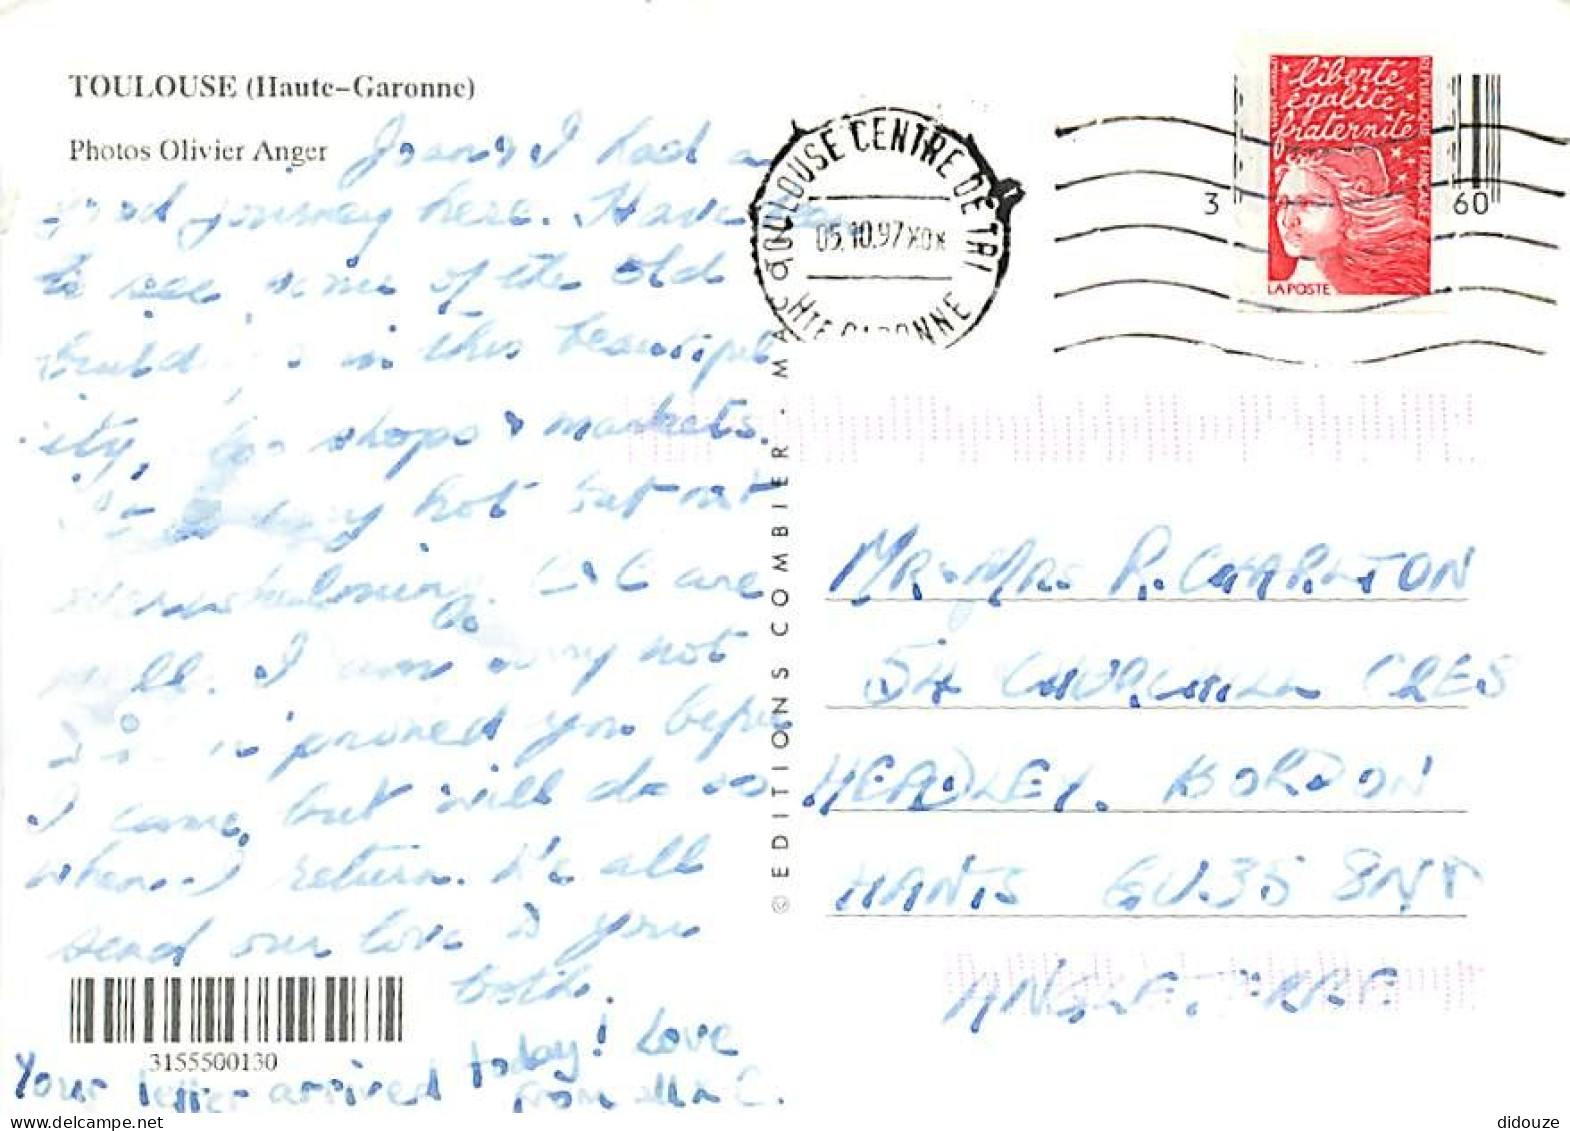 TOULOUSE (Haute-Garonne)
Photos Olivier Anger
I had a
good journey here. Have
to see some of the old
in this beautiful
city, shops & markets.
very hot but not
overwhelming. & C are
well. I am sorry not
phoned you before
I came, but will do so
when I return. We all
send our love to you
both.
3155500130
Your letter arrived today! Love
from &  C.
© EDITIONS COMBIER - MA
TOULOUSE CENTRE DE TRI
05.10.97
HTE GARONNE
3
60
liberté
égalité
fraternité
REPUBLIQUE FRANÇAISE
LA POSTE
MR & MRS R. CHARLTON
54 CHURCHILL CRES
HEADLEY. BORDON
HANTS GU35 8ND
ANGLETERRE
didouze